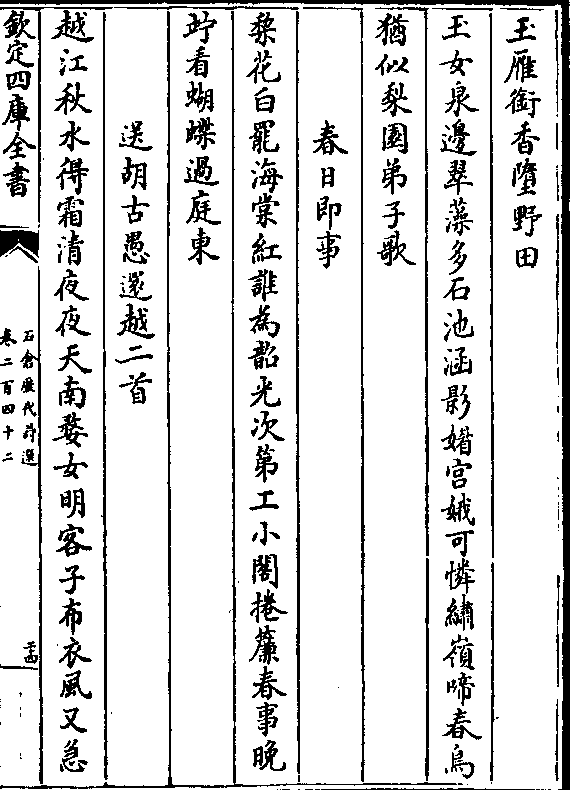 玉雁銜香墮野田
玉女泉邊翠藻多石池涵影㛿宮娥可憐繡嶺啼春鳥
猶似梨園弟子歌
春日即事
梨花白罷海棠紅誰為韶光次第工小閣捲簾春事晚
竚看蝴蝶過庭東
送胡古愚還越二首
越江秋水得霜清夜夜天南婺女明客子布衣風又急
欽定四庫全書
石倉歷代詩選
卷二百四十二